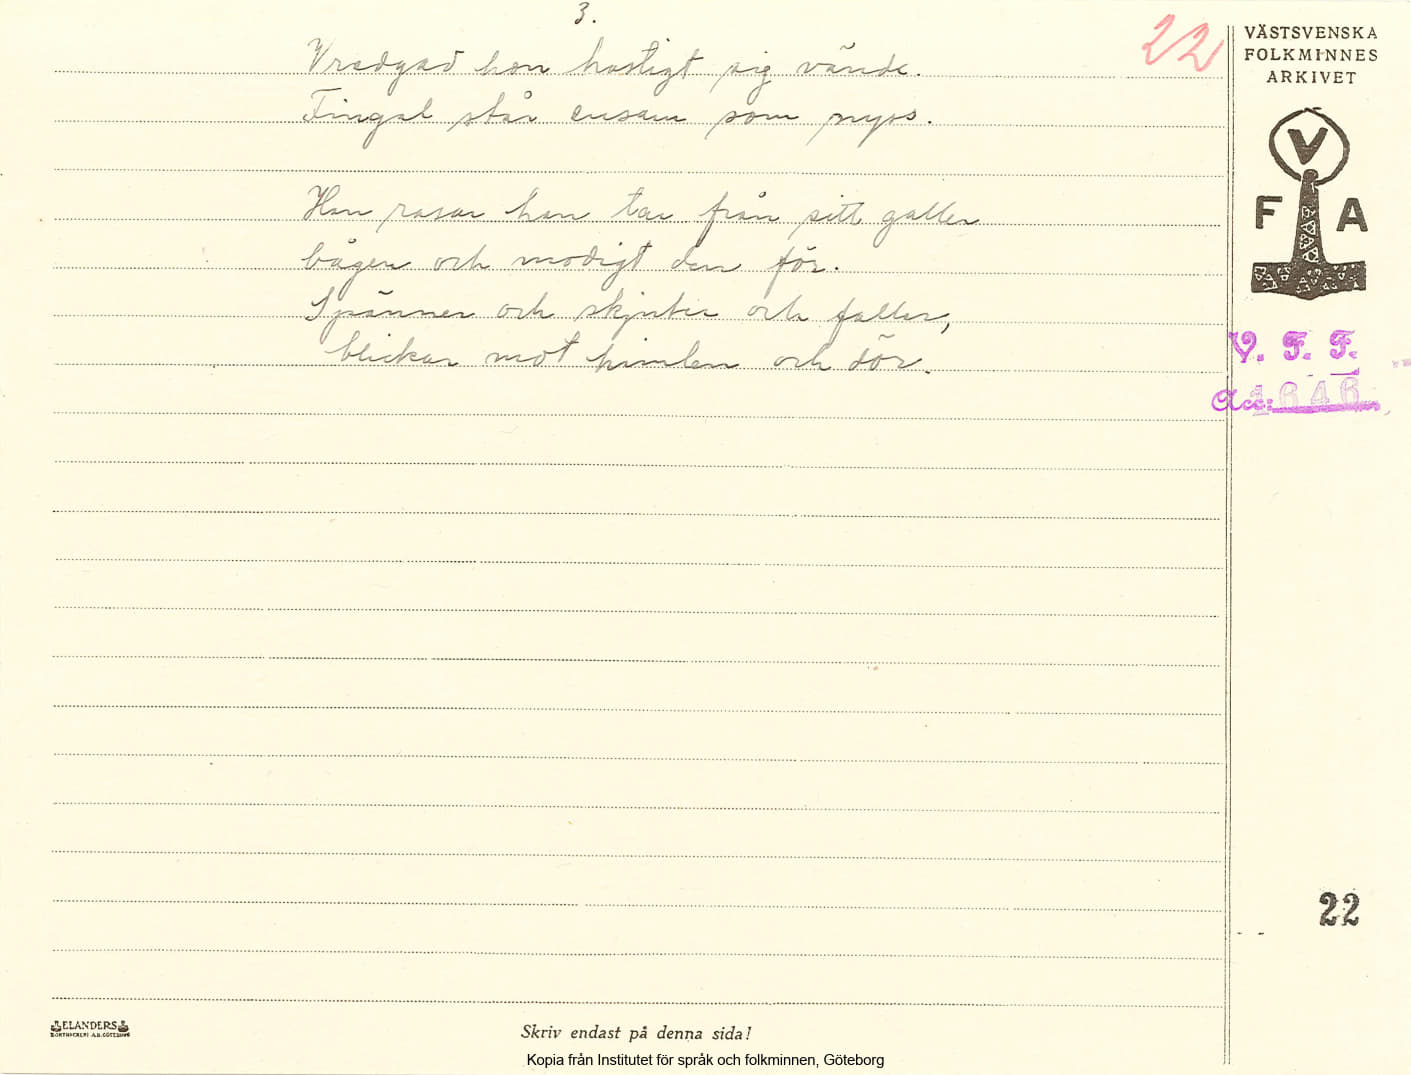 3.
22
Vredgad hon hastigt sig vände.
Fingal står ensam som nyss.
Hon rasar hon tar från sitt galler
bågen och modigt den för.
Spänner och skjuter och faller,
blickar mot himlen och dör.
VÄSTSVENSKA
FOLKMINNES
ARKIVET
V
F A
V. F. F.
Acc: 1646
22
ELANDERS
BOKTRYCKERI A.B. GÖTEBORG
Skriv endast på denna sida!
Kopia från Institutet för språk och folkminnen, Göteborg